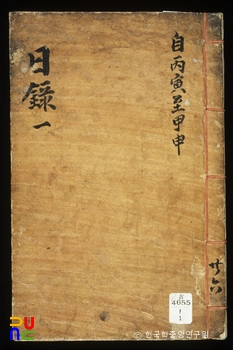 自丙寅至甲申
日錄 一
廿六
4685
1
© 한국학중앙연구원